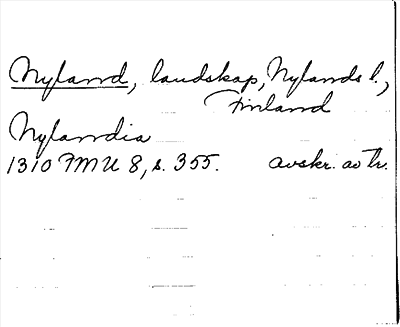 Nyland, landskap, Nylands l.,
Finland
Nylandia
1310 FMU 8, s. 355. avskr. av tr.